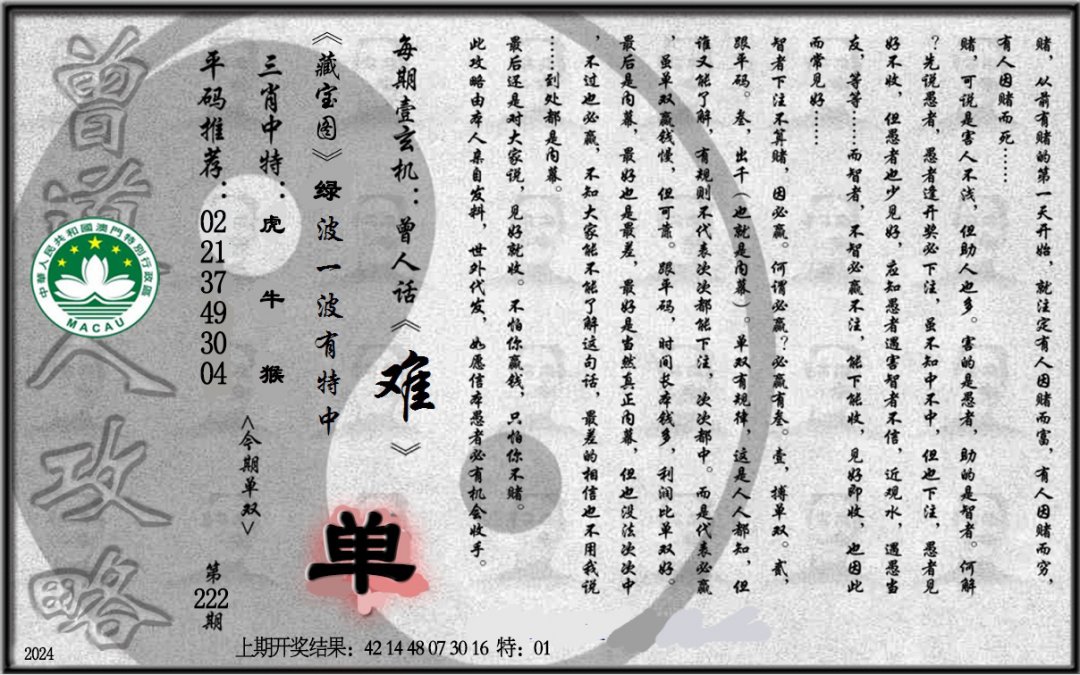 赌，从前有赌的第一天开始，就注定有人因赌而富，有人因赌而穷，
有人因赌而死……
赌，可说是害人不浅，但助人也多。害的是愚者，助的是智者。何解
？先说愚者，愚者逢开奖必下注，虽不知中不中，但也下注，愚者见
好不收，但愚者也少见好，应知愚者遇害智者不信，近观水，遇愚当
友，等等……而智者，不智必赢不注，能下能收，见好即收，也因此
而常见好……
智者下注不算赌，因必赢。何谓必赢？必赢有叁。壹，搏单双。贰，
跟平码。叁，出千（也就是内幕）。单双有规律，这是人人都知，但
谁又能了解，有规则不代表次次都能下注，次次都中。而是代表必赢
，虽单双赢钱慢，但可靠。跟平码，时间长本钱多，利润比单双好。
最后是内幕，最好也是最差，最好是当然真正内幕，但也没法次次中
，不过也必赢，不知大家能不能了解这句话，最差的相信也不用我说
……到处都是内幕。
最后还是对大家说，见好就收。不怕你赢钱，只怕你不赌。
此攻略由本人亲自发料，世外代发，如愿信本愚者必有机会收手。
每期壹玄机：曾人话《难》
《藏宝图》绿波一波有特中
单
三肖中特：虎 牛 猴
<今期单双>
平码推荐：02 21 37 49 30 04
第222期
曾道人攻略
中華人民共和國澳門特別行政區
MACAU
上期开奖结果：42 14 48 07 30 16 特：01
2024